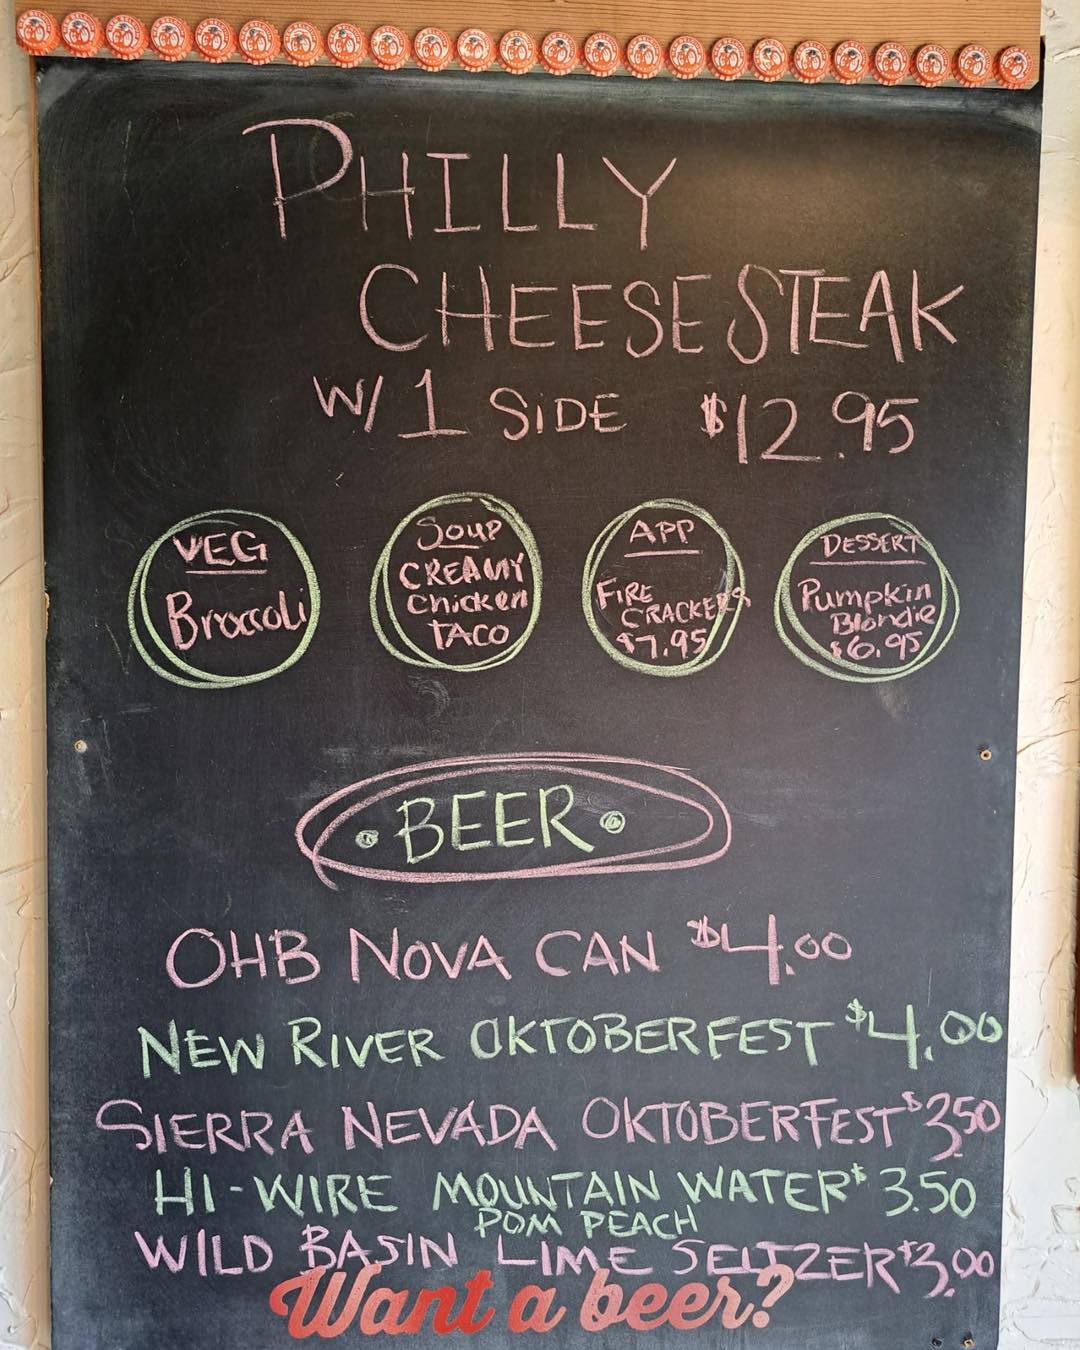 PHILLY
CHEESESTEAK
W/ 1 SIDE $12.95
VEG
Broccoli
SOUP
CREAMY
Chicken
TACO
APP
FIRE
CRACKERS
$7.95
DESSERT
Pumpkin
Blondie
$6.95
BEER
OHB NOVA CAN $4.00
NEW RIVER OKTOBERFEST $4.00
SIERRA NEVADA OKTOBERFEST $3.50
HI-WIRE MOUNTAIN WATER $3.50
POM PEACH
WILD BASIN LIME SELTZER $3.00
Want a beer?